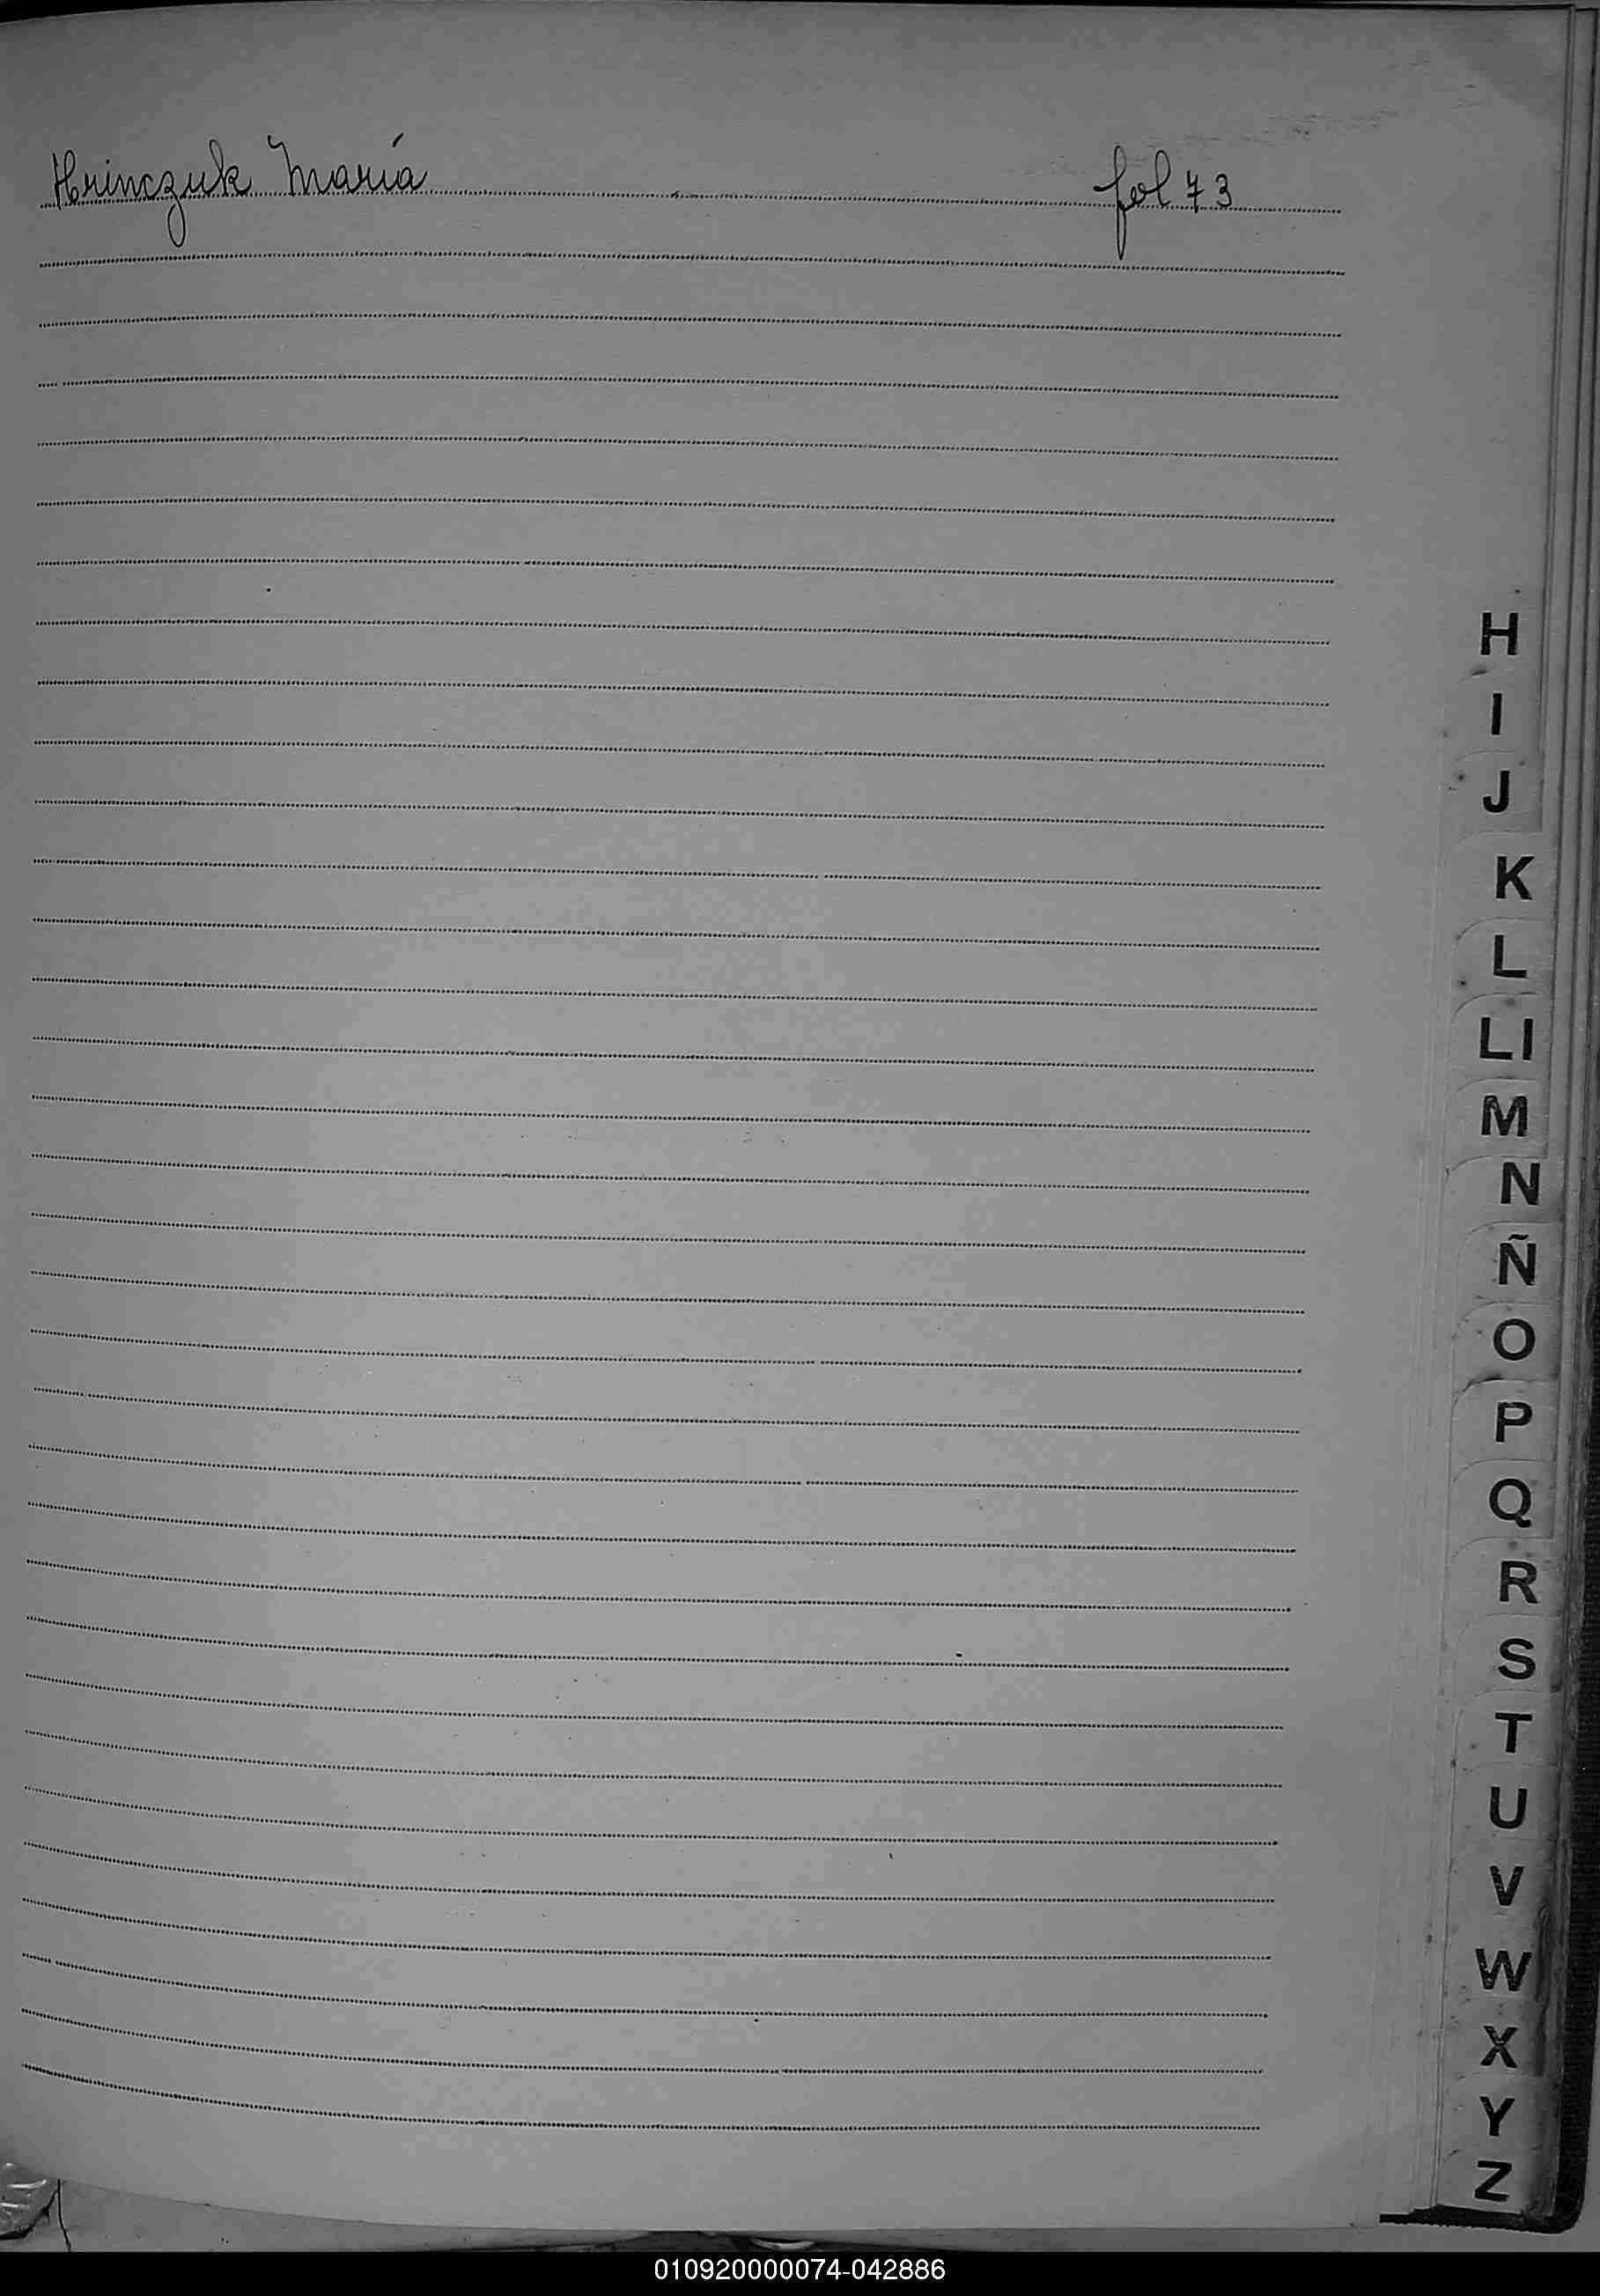 Hrinczuk María fol 73
H
I
J
K
L
Ll
M
N
Ñ
O
P
Q
R
S
T
U
V
W
X
Y
Z
010920000074-042886